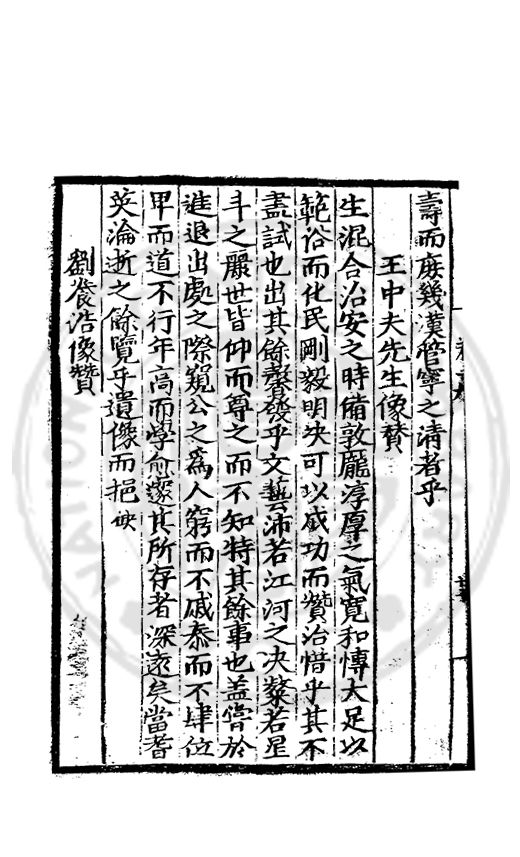 壽而庶幾漢管寧之清者乎
王中夫先生像贊
生混合治安之時備敦龐淳厚之氣寬和慱大足以
範俗而化民剛毅明决可以成功而贊治惜乎其不
盡試也出其餘發乎文藝沛若江河之决粲若星
斗之麗世皆仰而尊之而不知特其餘事也盖甞於
進退出處之際窺公之為人窮而不戚泰而不肆位
卑而道不行年高而學愈邃其所存者深遠矣當耆
英淪逝之餘覽乎遺像而挹 缺
劉養浩像贊